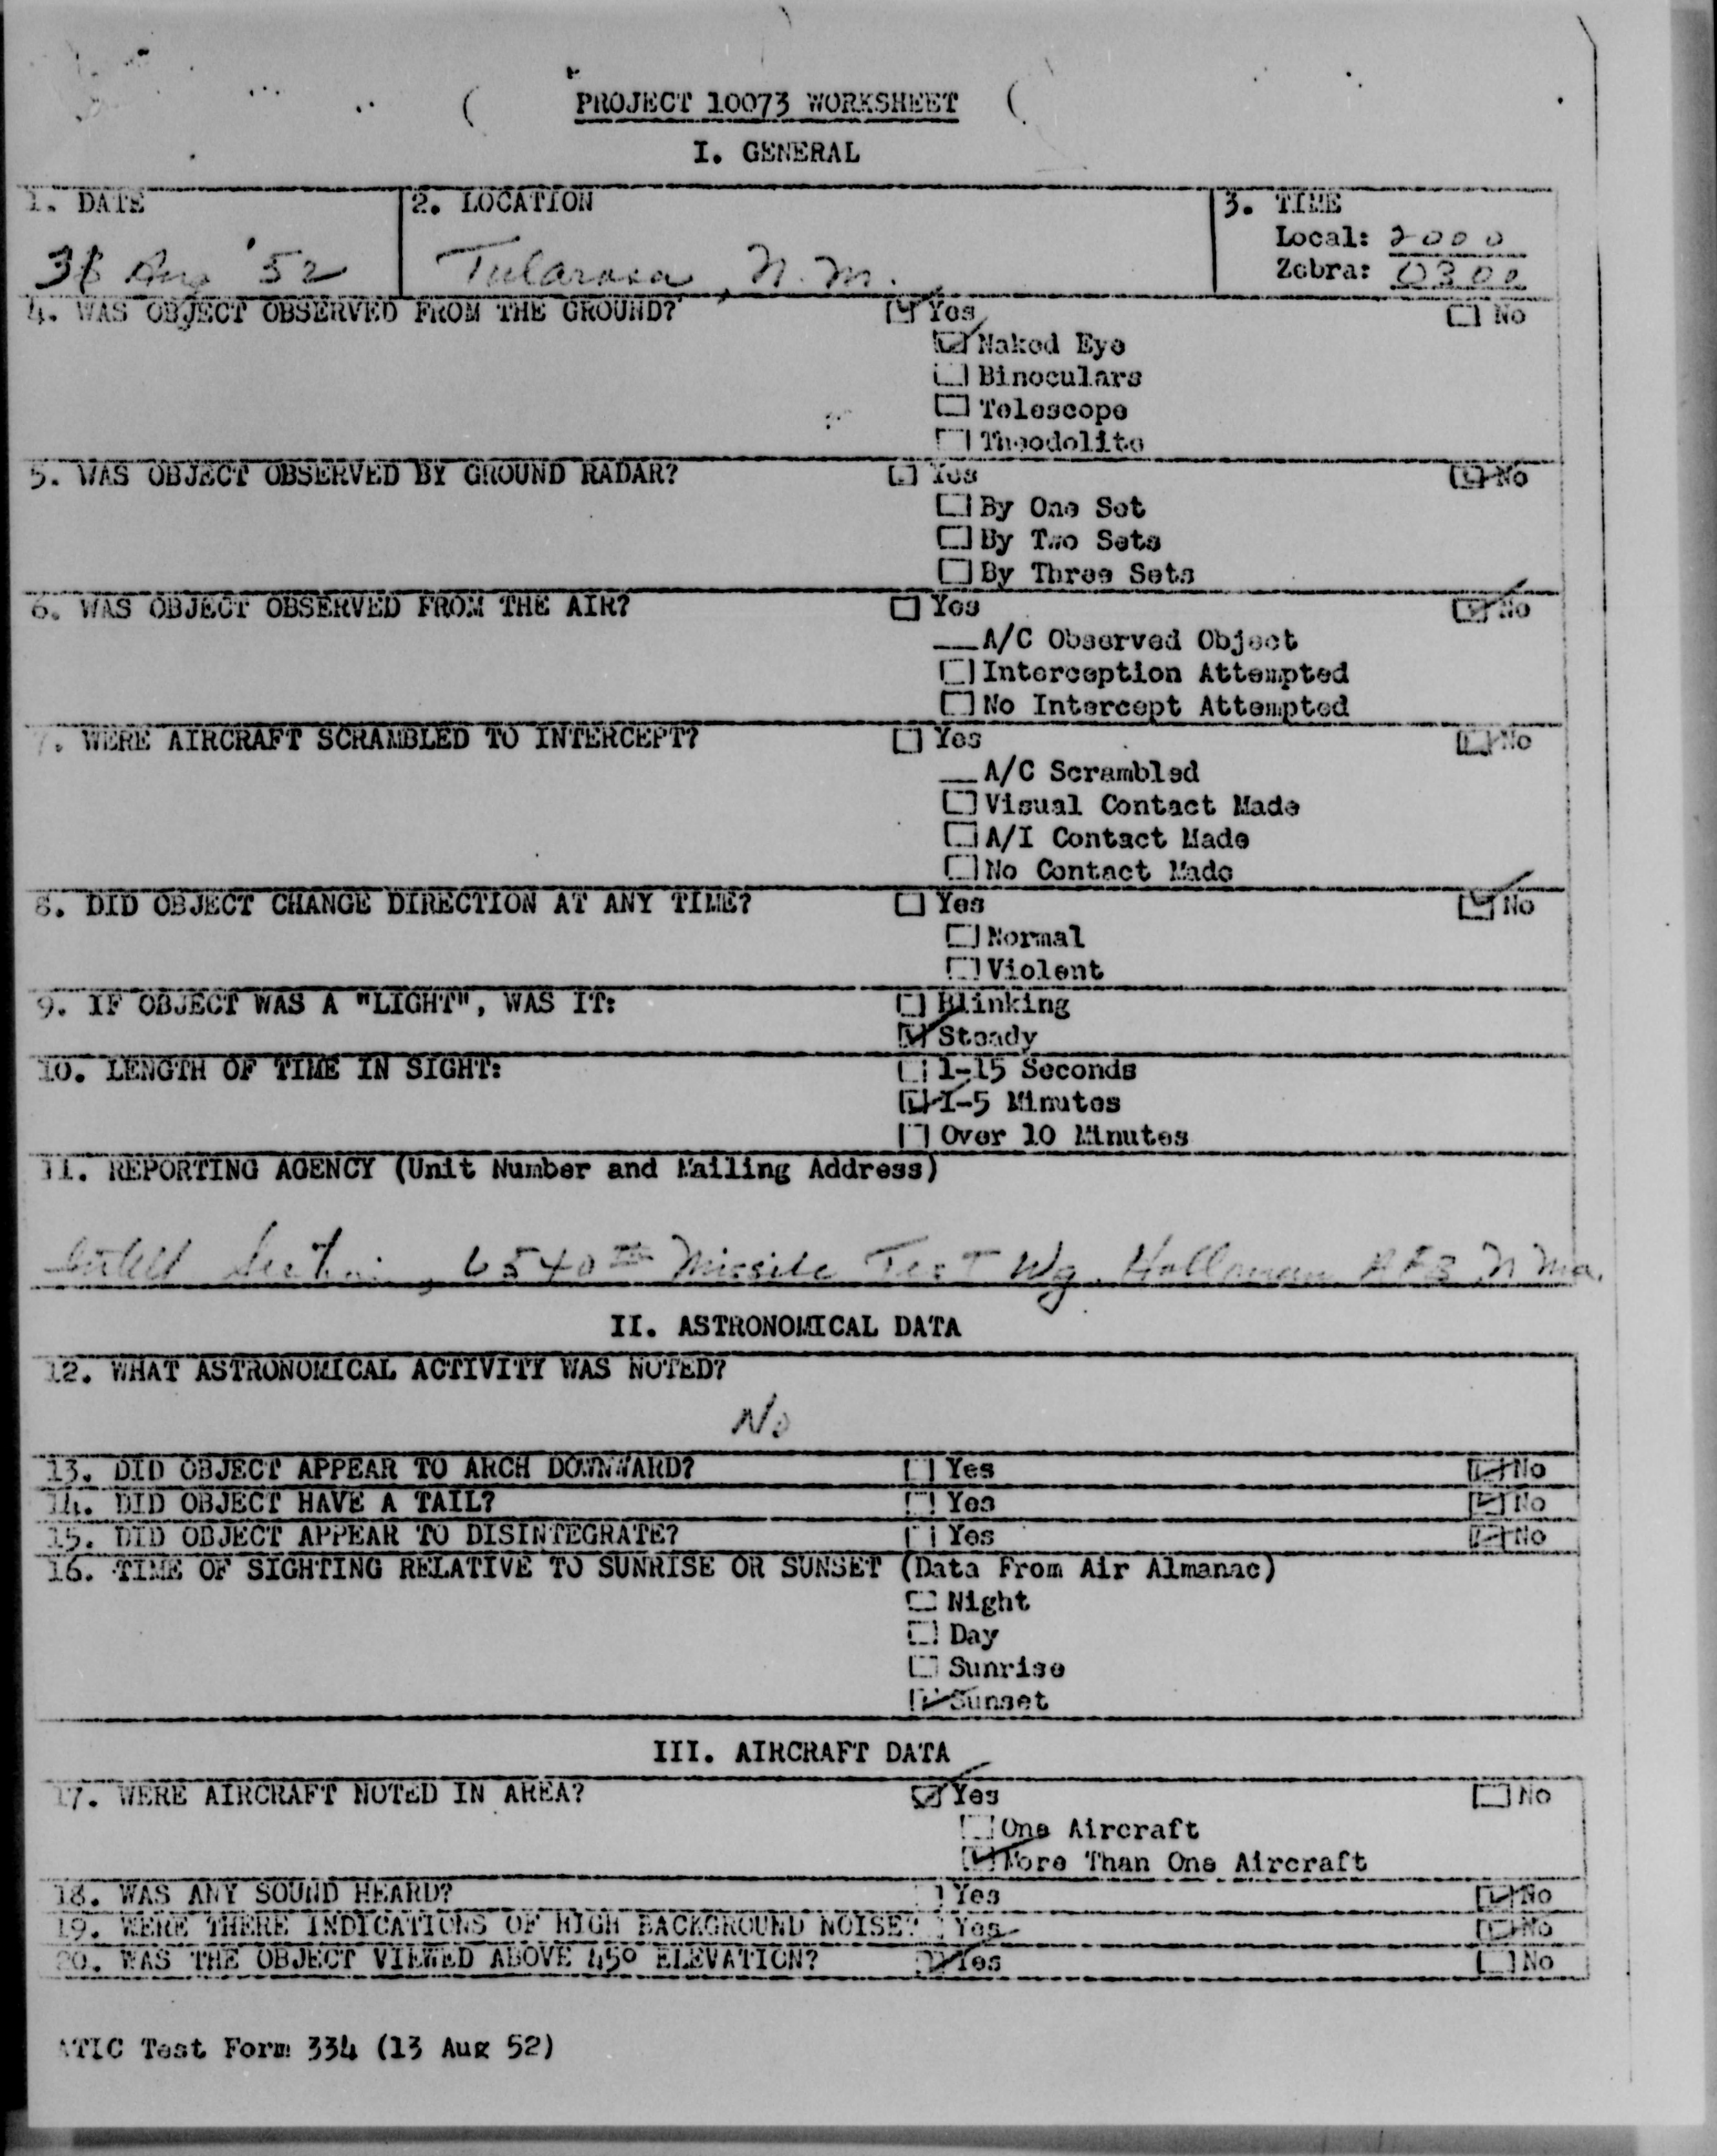 PROJECT 10073 WORKSHEET
I. GENERAL
1. DATE
2. LOCATION
3. TIME
Local: 2000
Zebra: 0300
Aug '52
Tularosa, N. M.
4. WAS OBJECT OBSERVED FROM THE GROUND? Yes No
Naked Eye
Binoculars
Telescope
Theodolite
5. WAS OBJECT OBSERVED BY GROUND RADAR? Yes No
By One Set
By Two Sets
By Three Sets
6. WAS OBJECT OBSERVED FROM THE AIR? Yes No
A/C Observed Object
Interception Attempted
No Intercept Attempted
7. WERE AIRCRAFT SCRAMBLED TO INTERCEPT? Yes No
A/C Scrambled
Visual Contact Made
A/I Contact Made
No Contact Made
8. DID OBJECT CHANGE DIRECTION AT ANY TIME? Yes No
Normal
Violent
9. IF OBJECT WAS A "LIGHT", WAS IT: Blinking
Steady
10. LENGTH OF TIME IN SIGHT: 1-15 Seconds
1-5 Minutes
Over 10 Minutes
11. REPORTING AGENCY (Unit Number and Mailing Address)
Intell Section, 6540th Missile Test Wg. Holloman AFB
II. ASTRONOMICAL DATA
12. WHAT ASTRONOMICAL ACTIVITY WAS NOTED?
No
13. DID OBJECT APPEAR TO ARCH DOWNWARD? Yes No
14. DID OBJECT HAVE A TAIL? Yes No
15. DID OBJECT APPEAR TO DISINTEGRATE? Yes No
16. TIME OF SIGHTING RELATIVE TO SUNRISE OR SUNSET (Data From Air Almanac)
Night
Day
Sunrise
Sunset
III. AIRCRAFT DATA
17. WERE AIRCRAFT NOTED IN AREA? Yes No
One Aircraft
More Than One Aircraft
18. WAS ANY SOUND HEARD? Yes No
19. WERE THERE INDICATIONS OF HIGH BACKGROUND NOISE? Yes No
20. WAS THE OBJECT VIEWED ABOVE 45° ELEVATION? Yes No
ATIC Test Form 334 (13 Aug 52)